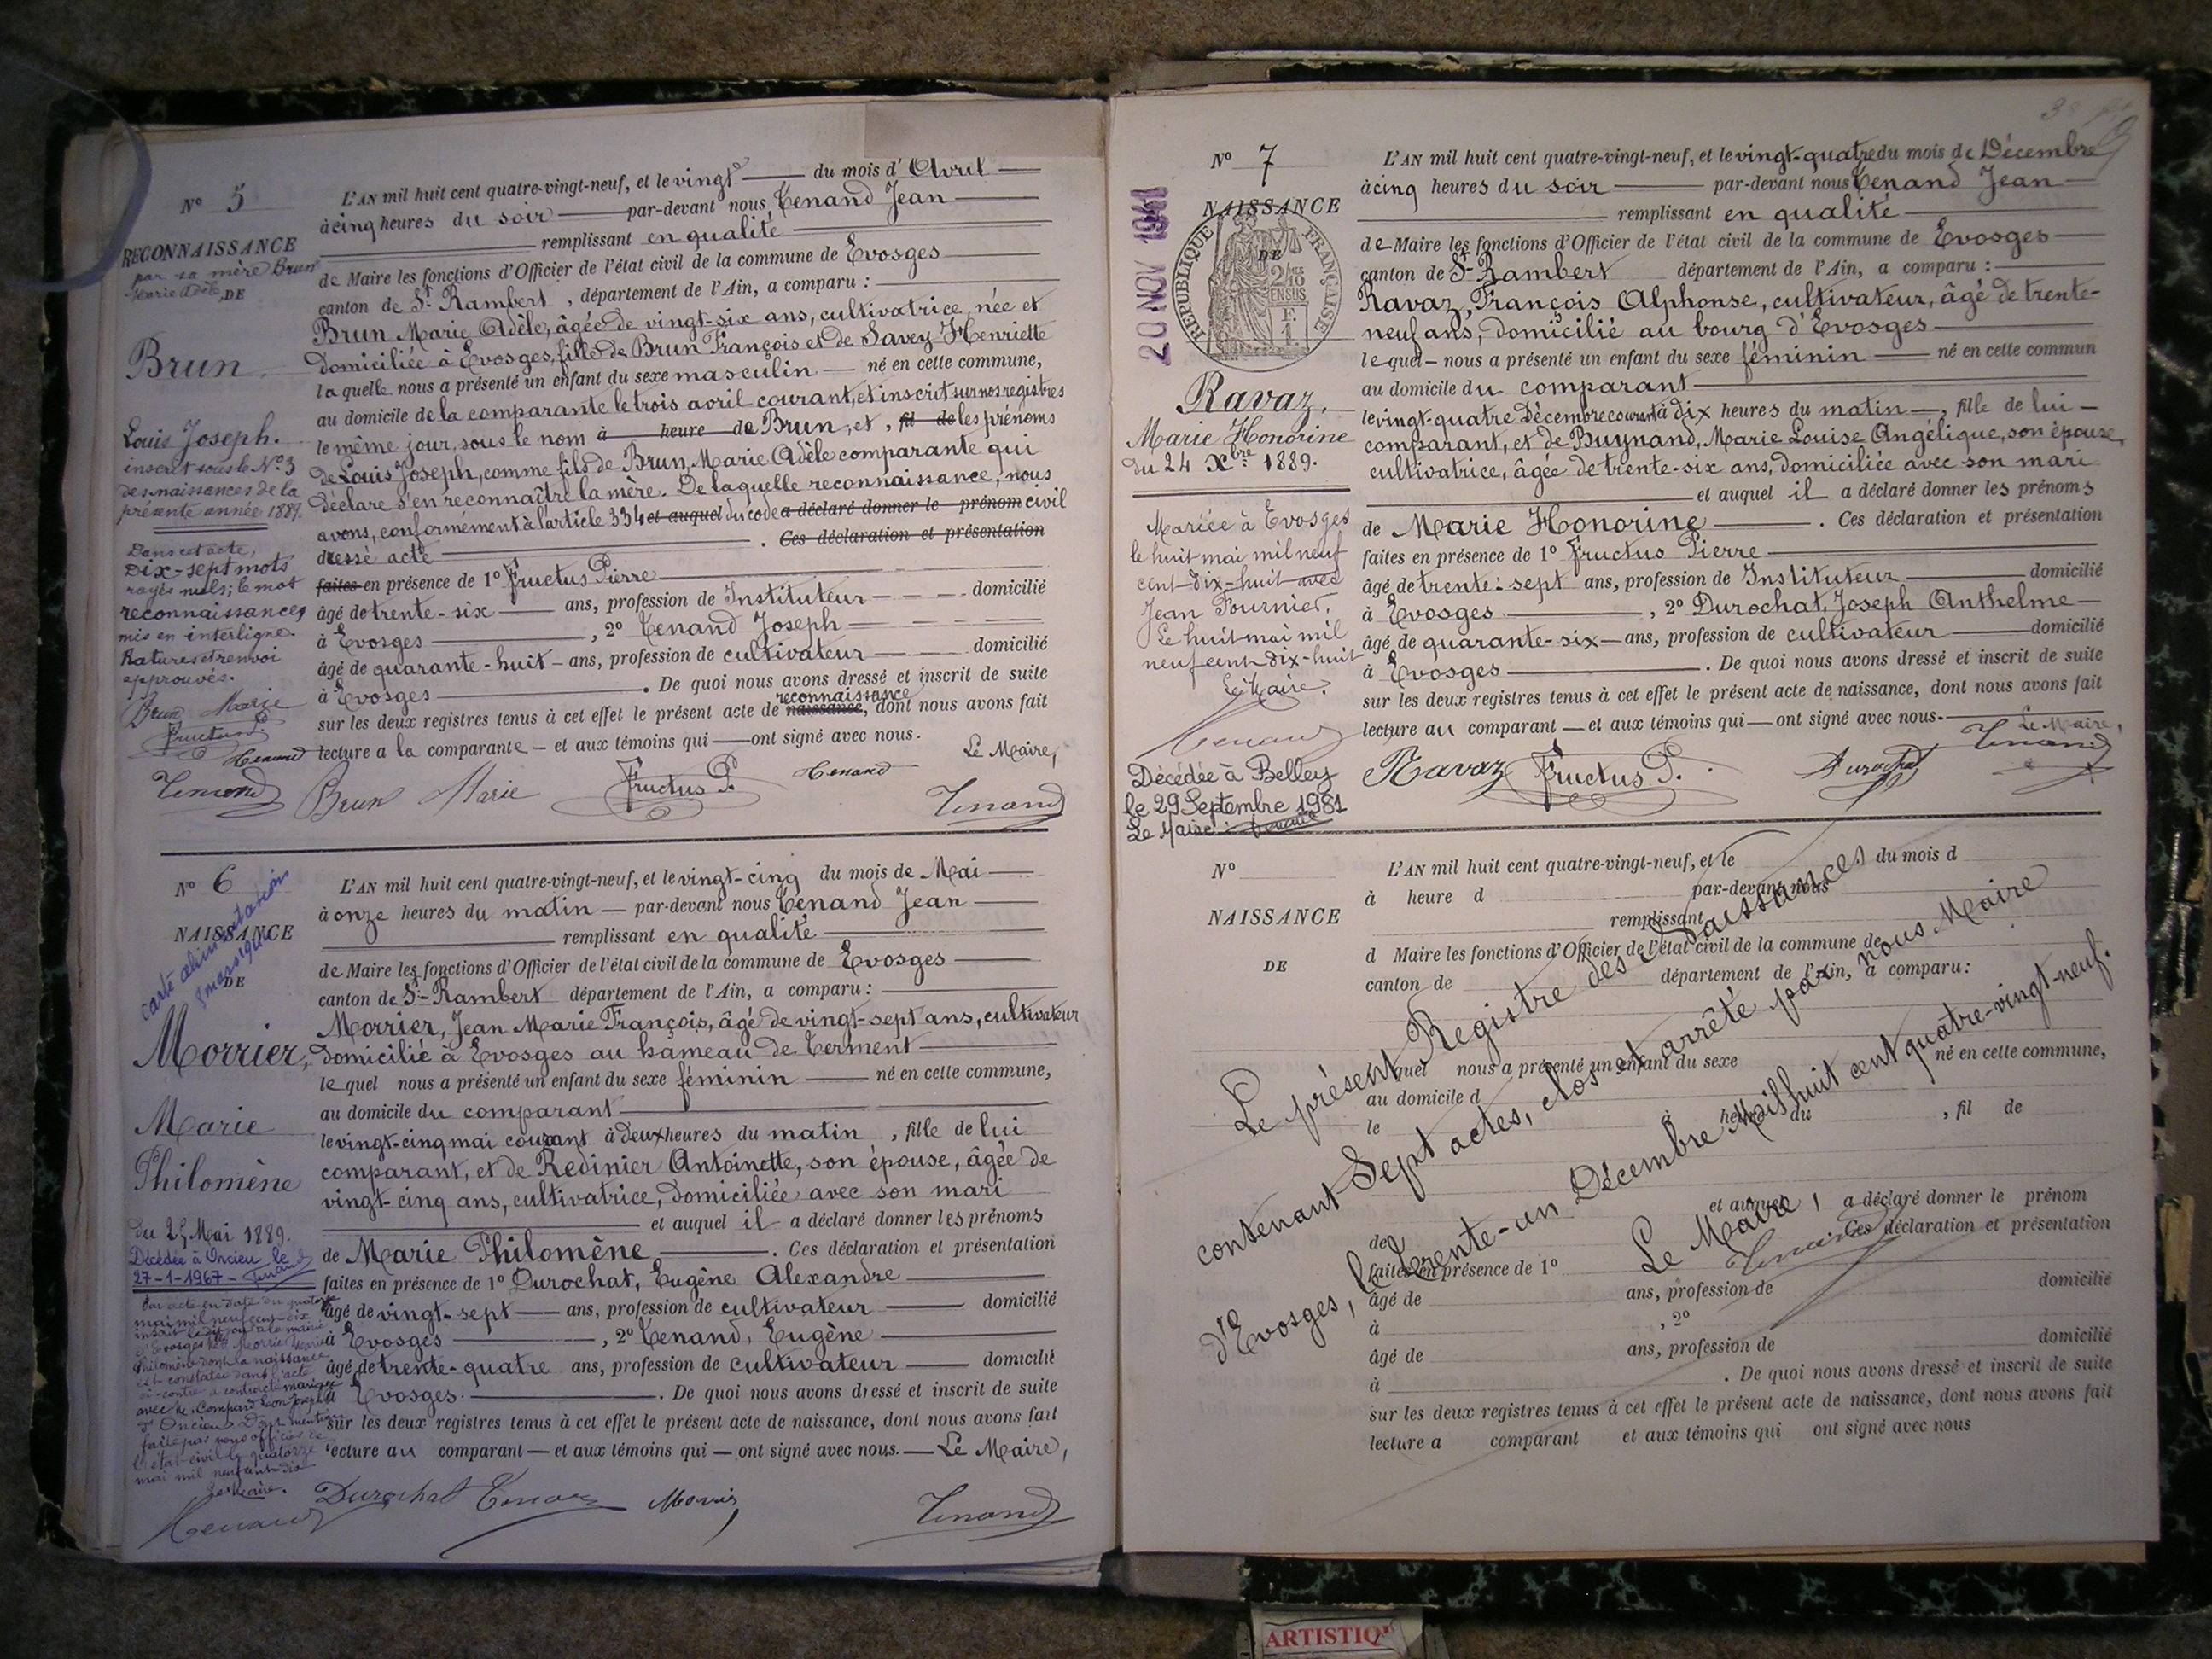 Nº 5
RECONNAISSANCE
par sa mère Brun
Marie Adèle
DE
Brun
Louis Joseph.
inscrit sous le Nº 3
des naissances de la
présente année 1889.
Dans cet acte,
dix-sept mots
rayés nuls; le mot
reconnaissance,
mis en interligne.
Ratures et renvoi
approuvés.
Brun Marie
Fructus P.
Tenand
Tenand
L'AN mil huit cent quatre-vingt-neuf, et le vingt du mois d'Avril
à cinq heures du soir par-devant nous Tenand Jean
remplissant en qualité
de Maire les fonctions d'Officier de l'état civil de la commune de Evosges
canton de St Rambert, département de l'Ain, a comparu :
Brun Marie Adèle, âgée de vingt-six ans, cultivatrice, née et
domiciliée à Evosges, fille de Brun François et de Savey Henriette
laquelle nous a présenté un enfant du sexe masculin né en cette commune,
au domicile de la comparante le trois avril courant, et inscrit sur nos registres
le même jour, sous le nom à heure de Brun, et, fil de les prénoms
de Louis Joseph, comme fils de Brun, Marie Adèle comparante qui
déclare s'en reconnaître la mère. De laquelle reconnaissance, nous
avons, conformément à l'article 334 et auquel du code a déclaré donner le prénom civil
dressé acte . Ces déclaration et présentation
faites en présence de 1º Fructus Pierre
âgé de trente-six ans, profession de Instituteur domicilié
à Evosges, 2º Tenand Joseph
âgé de quarante-huit ans, profession de cultivateur domicilié
à Evosges. De quoi nous avons dressé et inscrit de suite
reconnaissance
sur les deux registres tenus à cet effet le présent acte de naissance, dont nous avons fait
lecture a la comparante et aux témoins qui ont signé avec nous.
Le Maire,
Brun Marie Fructus P. Tenand Tenand
Nº 6
NAISSANCE
DE
carte alimentation
Morrier,
Marie
Philomène
du 25 Mai 1889.
Décédée à Oncieu le
27-1-1967 - Tenand
Par acte en date du quatorze
mai mil neuf cent dix
inscrit à la mairie
d'Evosges Morrier Marie
Philomène dont la naissance
est constatée dans l'acte
ci-contre a contracté mariage
avec Joseph
d'Oncieu Dont mention
faite par nous officier de
l'état-civil le quatorze
mai mil neuf cent dix
Le Maire.
Tenand
L'AN mil huit cent quatre-vingt-neuf, et le vingt-cinq du mois de Mai
à onze heures du matin par-devant nous Tenand Jean
remplissant en qualité
de Maire les fonctions d'Officier de l'état civil de la commune de Evosges
canton de St-Rambert département de l'Ain, a comparu :
Morrier, Jean Marie François, âgé de vingt-sept ans, cultivateur
domicilié à Evosges au hameau de Cerment
lequel nous a présenté un enfant du sexe féminin né en cette commune,
au domicile du comparant
le vingt-cinq mai courant à deux heures du matin, fille de lui
comparant, et de Redinier Antoinette, son épouse, âgée de
vingt-cinq ans, cultivatrice, domiciliée avec son mari
et auquel il a déclaré donner les prénoms
de Marie Philomène. Ces déclaration et présentation
faites en présence de 1º Durochat, Eugène Alexandre
âgé de vingt-sept ans, profession de cultivateur domicilié
à Evosges, 2º Tenand, Eugène
âgé de trente-quatre ans, profession de cultivateur domicilié
à Evosges. De quoi nous avons dressé et inscrit de suite
sur les deux registres tenus à cet effet le présent acte de naissance, dont nous avons fait
lecture au comparant et aux témoins qui ont signé avec nous. Le Maire,
Durochat Tenand Morrier Tenand
Nº 7
NAISSANCE
DE
20 NOV 1941
REPUBLIQUE FRANÇAISE
2/10 EN SUS
F. 1
Ravaz,
Marie Honorine
du 24 Xbre 1889.
Mariée à Evosges
le huit mai mil neuf
cent dix-huit avec
Jean Fournier.
Le huit mai mil
neuf cent dix-huit
Le Maire.
Tenand
Décédée à Belley
le 29 Septembre 1981
Le Maire
L'AN mil huit cent quatre-vingt-neuf, et le vingt-quatre du mois de Décembre
à cinq heures du soir par-devant nous Tenand Jean
remplissant en qualité
de Maire les fonctions d'Officier de l'état civil de la commune de Evosges
canton de St-Rambert département de l'Ain, a comparu :
Ravaz, François Alphonse, cultivateur, âgé de trente-
neuf ans, domicilié au bourg d'Evosges
lequel nous a présenté un enfant du sexe féminin né en cette commun
au domicile du comparant
le vingt-quatre Décembre courant à dix heures du matin, fille de lui
comparant, et de Buynand, Marie Louise Angélique, son épouse,
cultivatrice, âgée de trente-six ans, domiciliée avec son mari
et auquel il a déclaré donner les prénoms
de Marie Honorine. Ces déclaration et présentation
faites en présence de 1º Fructus Pierre
âgé de trente-sept ans, profession de Instituteur domicilié
à Evosges, 2º Durochat, Joseph Anthelme
âgé de quarante-six ans, profession de cultivateur domicilié
à Evosges. De quoi nous avons dressé et inscrit de suite
sur les deux registres tenus à cet effet le présent acte de naissance, dont nous avons fait
lecture au comparant et aux témoins qui ont signé avec nous. Le Maire,
Ravaz Fructus P. Durochat Tenand
Nº
NAISSANCE
DE
L'AN mil huit cent quatre-vingt-neuf, et le du mois d
à heure d par-devant nous
remplissant
d Maire les fonctions d'Officier de l'état civil de la commune de
canton de département de l'Ain, a comparu :
quel nous a présenté un enfant du sexe né en cette commune,
au domicile d
le à heure du , fil de
et auquel a déclaré donner le prénom
de Ces déclaration et présentation
faites en présence de 1º
âgé de ans, profession de domicilié
à , 2º
âgé de ans, profession de domicilié
à . De quoi nous avons dressé et inscrit de suite
sur les deux registres tenus à cet effet le présent acte de naissance, dont nous avons fait
lecture a comparant et aux témoins qui ont signé avec nous
Le présent Registre des Naissances
contenant Sept actes, clos et arrêté par nous Maire
d'Evosges, le trente-un Décembre Mil huit cent quatre-vingt-neuf.
Le Maire,
Tenand
ARTISTIQ